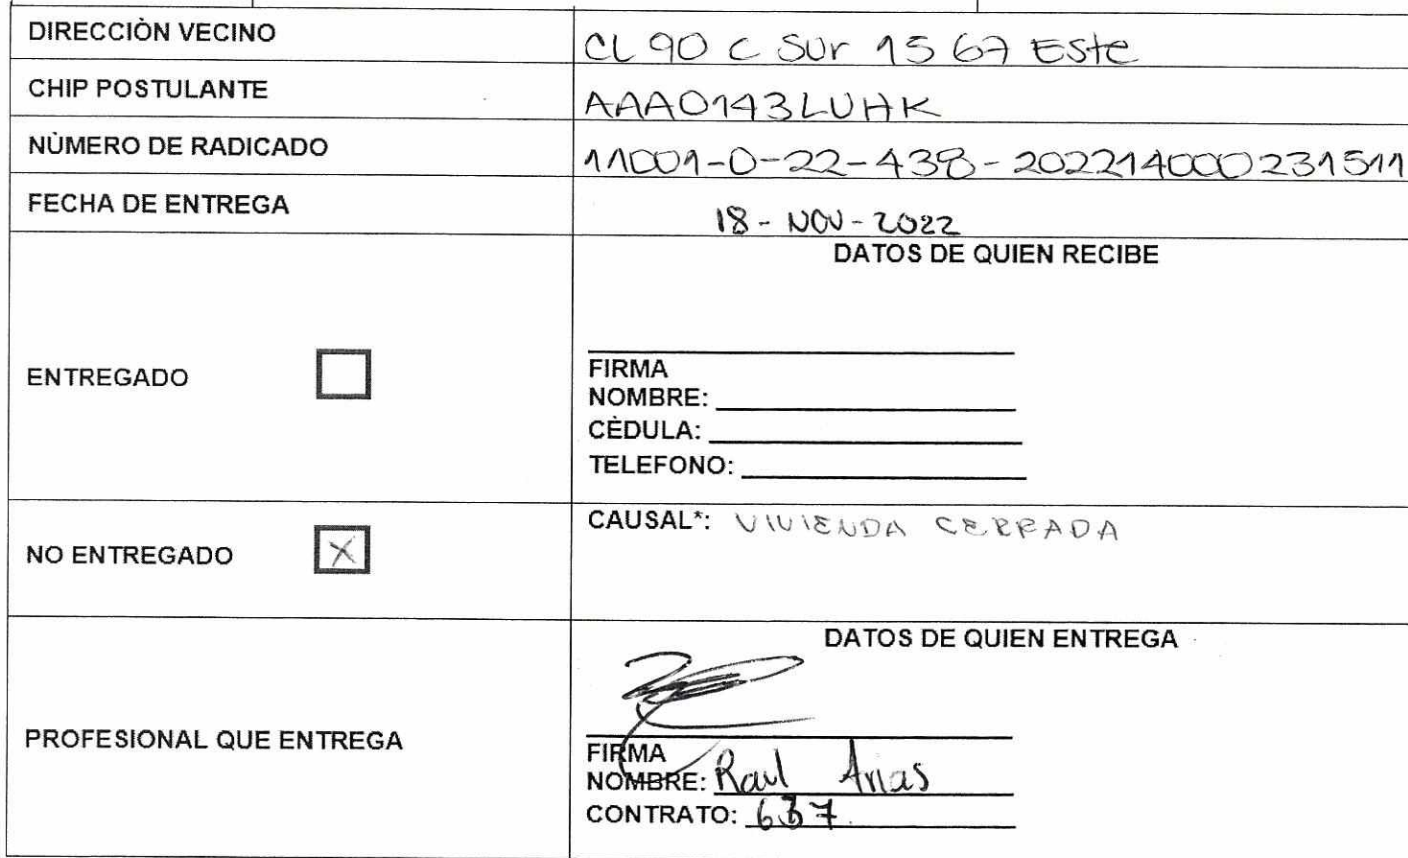 DIRECCIÒN VECINO CL 90 C SUr 15 67 Este
CHIP POSTULANTE AAA0143LUHK
NÙMERO DE RADICADO 11001-0-22-438-202214000231511
FECHA DE ENTREGA 18-NOV-2022
DATOS DE QUIEN RECIBE
ENTREGADO
FIRMA
NOMBRE:
CÈDULA:
TELEFONO:
NO ENTREGADO X
CAUSAL*: VIVIENDA CERRADA
DATOS DE QUIEN ENTREGA
PROFESIONAL QUE ENTREGA
FIRMA
NOMBRE: Raul Arias
CONTRATO: 637